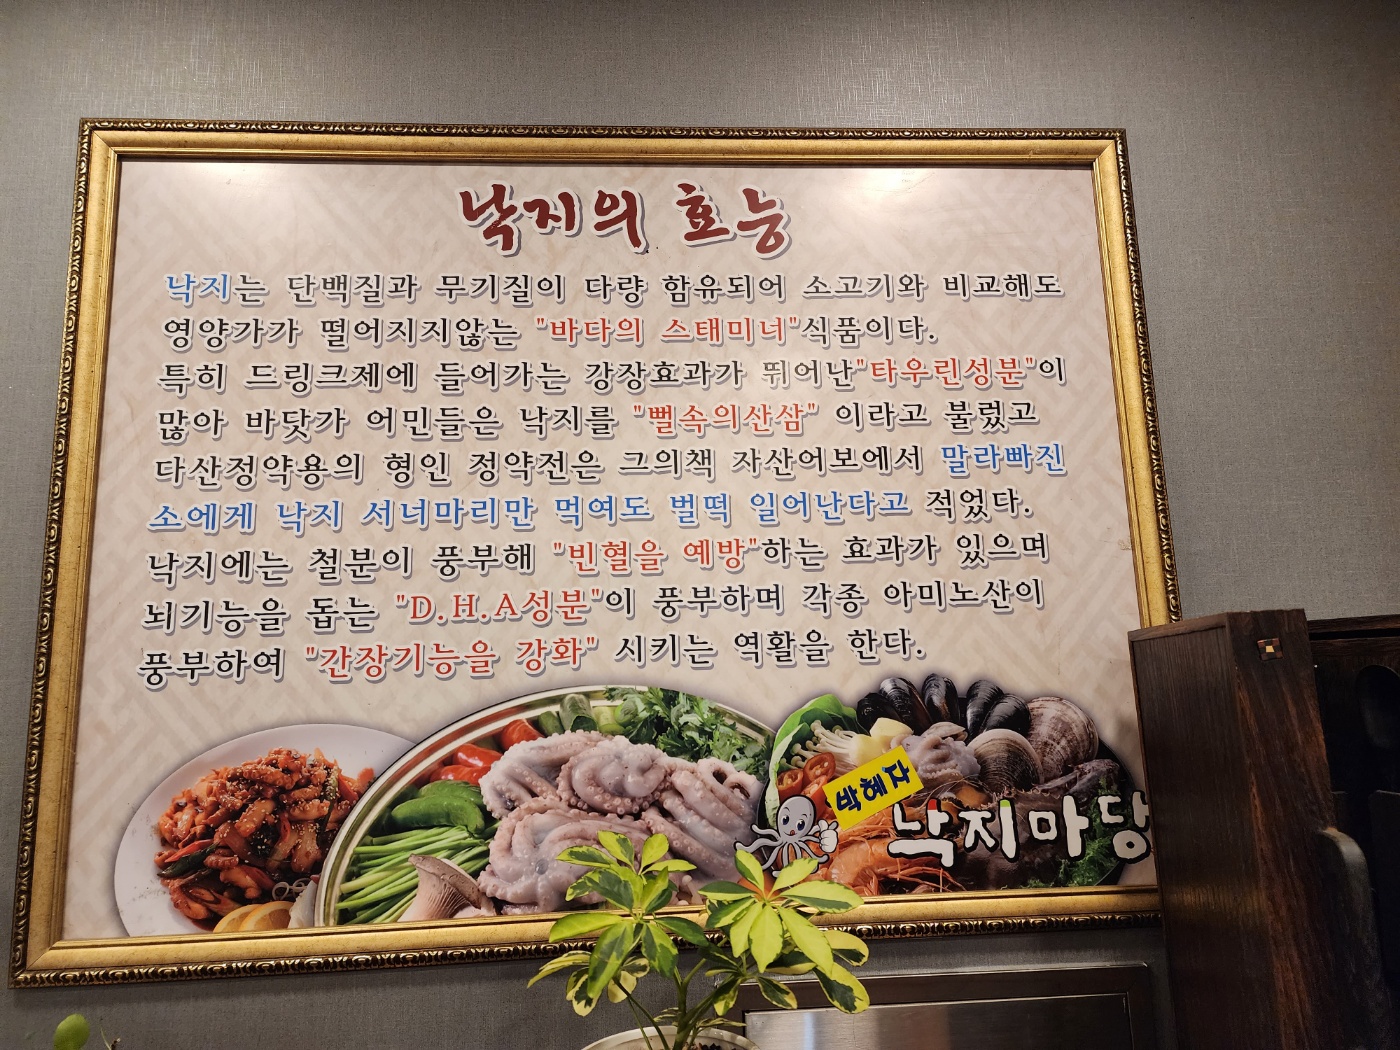 낙지의 효능
낙지는 단백질과 무기질이 다량 함유되어 소고기와 비교해도
영양가가 떨어지지않는 "바다의 스태미너"식품이다.
특히 드링크제에 들어가는 강장효과가 뛰어난"타우린성분"이
많아 바닷가 어민들은 낙지를 "뻘속의산삼" 이라고 불렀고
다산정약용의 형인 정약전은 그의책 자산어보에서 말라빠진
소에게 낙지 서너마리만 먹여도 벌떡 일어난다고 적었다.
낙지에는 철분이 풍부해 "빈혈을 예방"하는 효과가 있으며
뇌기능을 돕는 "D.H.A성분"이 풍부하며 각종 아미노산이
풍부하여 "간장기능을 강화" 시키는 역활을 한다.
박혜자
낙지마당